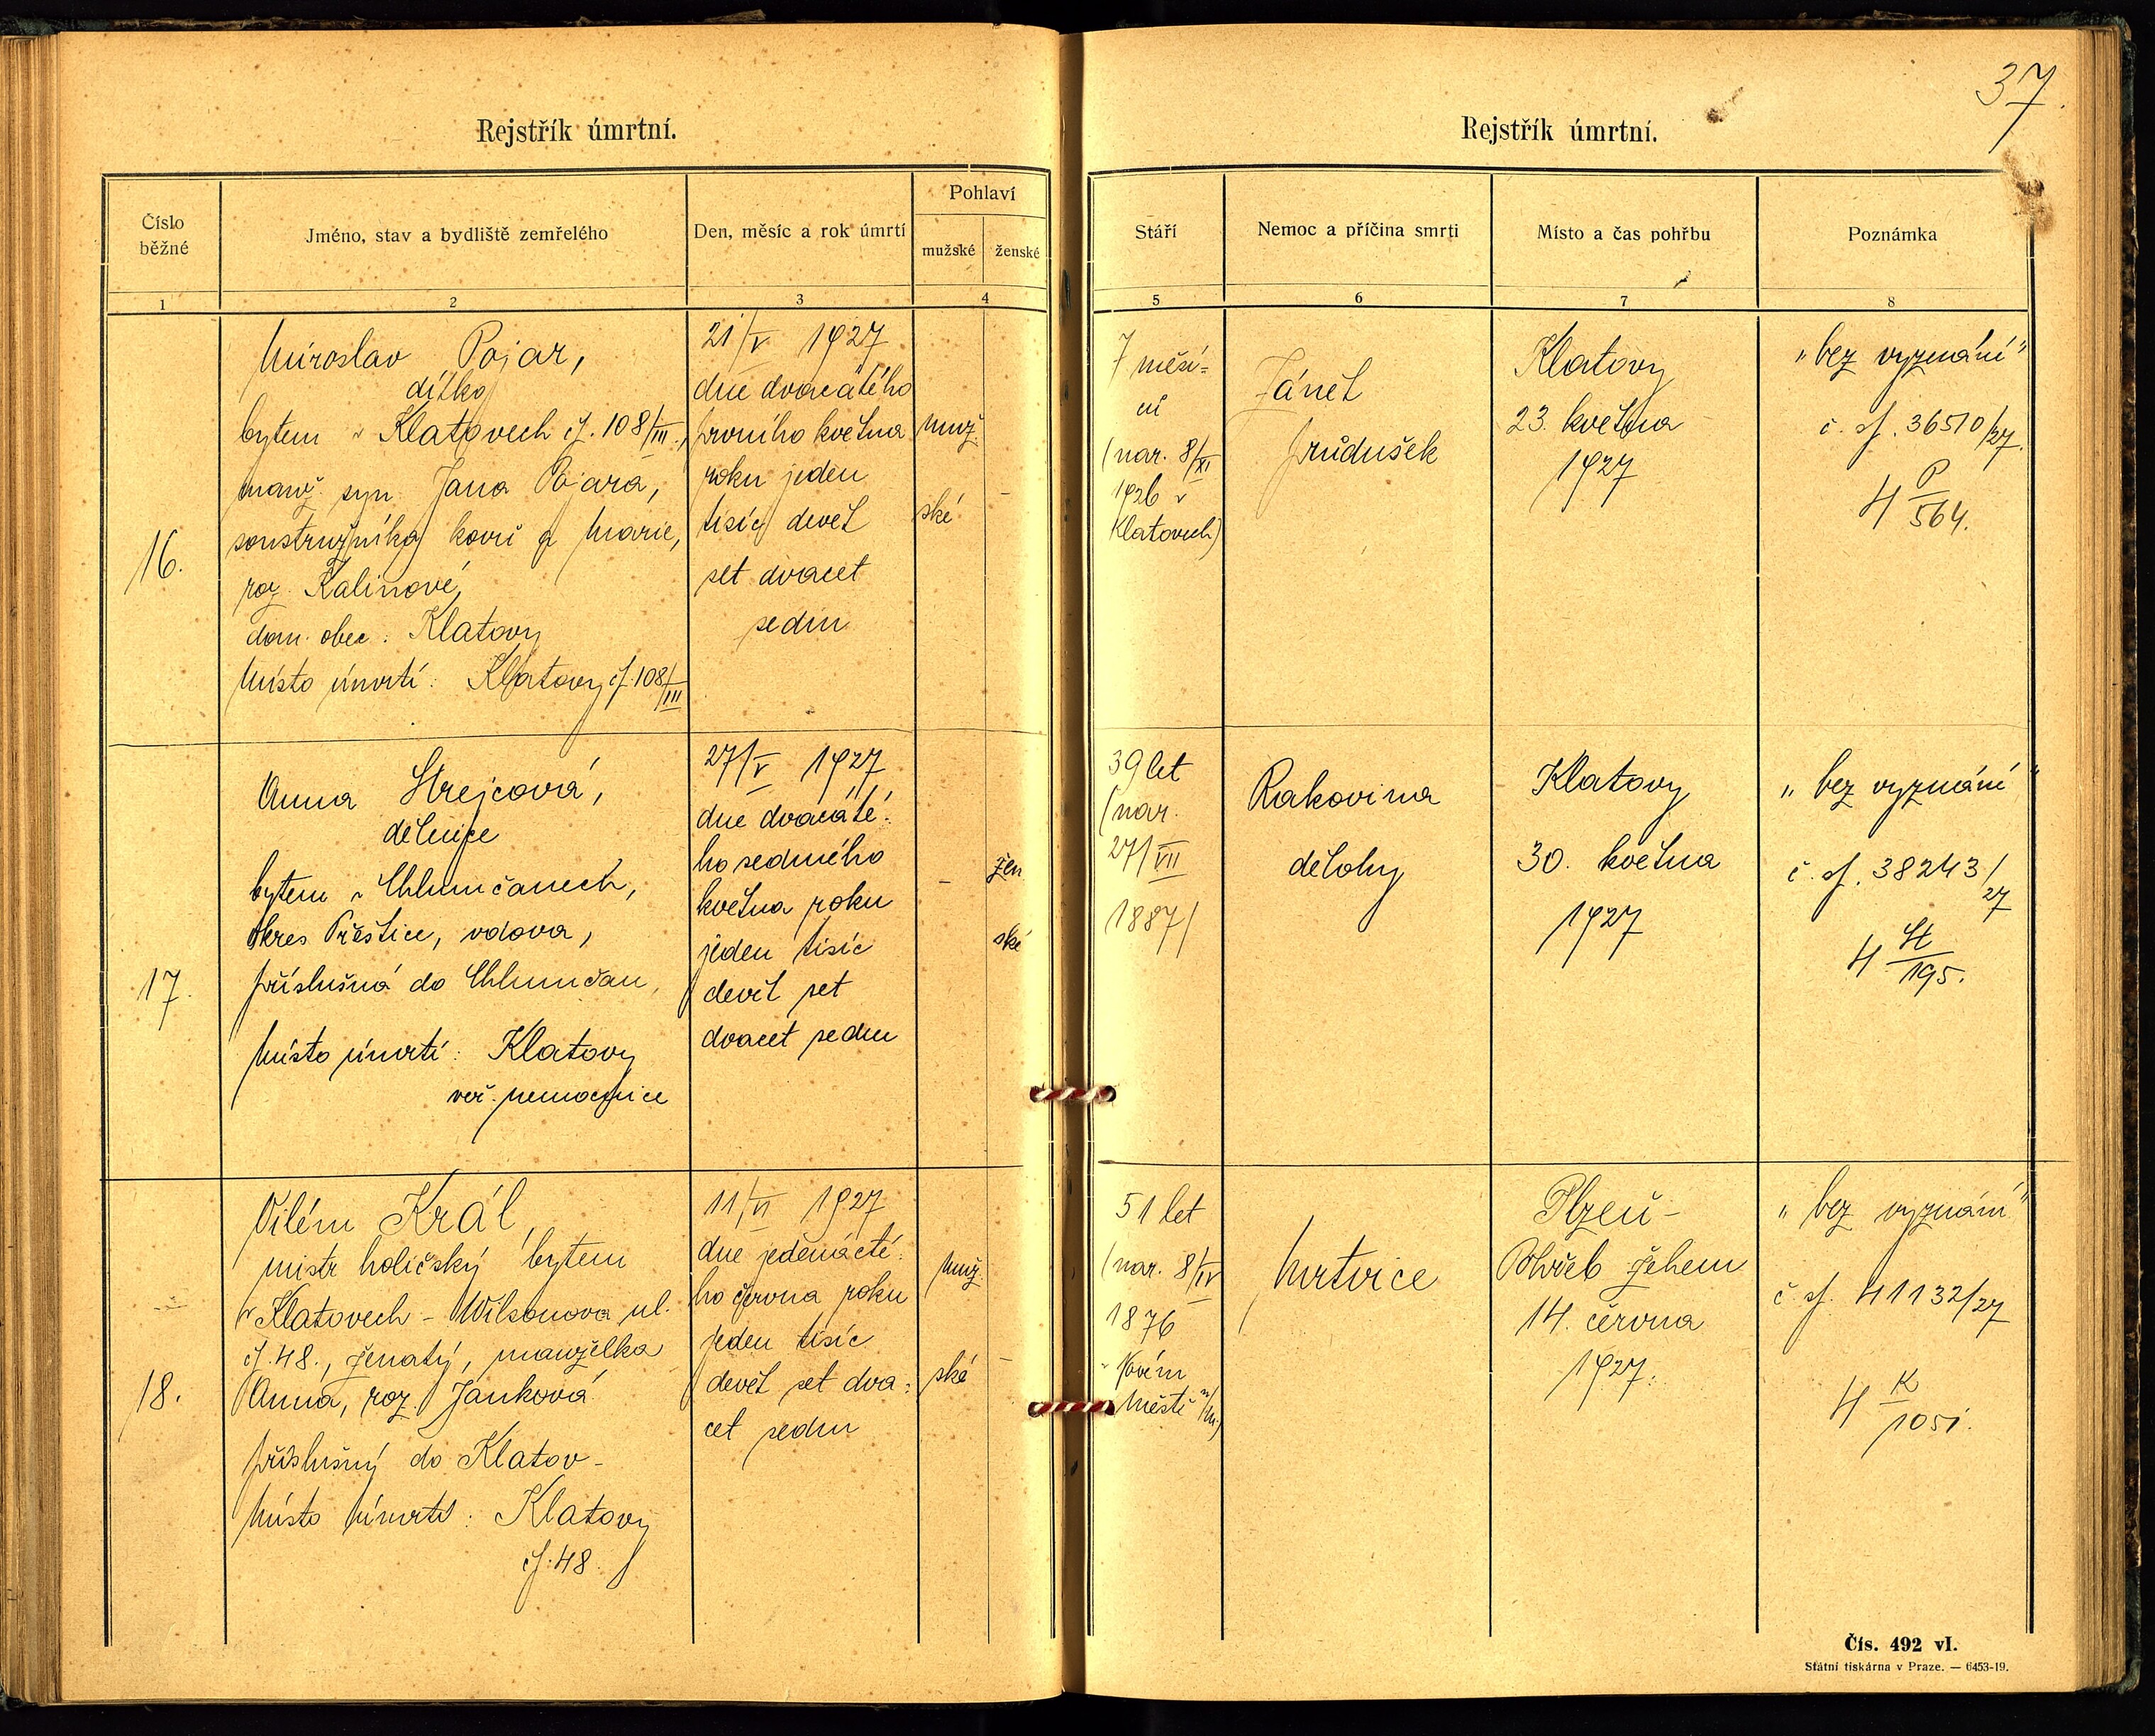 37.
Rejstřík úmrtní.
Číslo běžné
Jméno, stav a bydliště zemřelého
Den, měsíc a rok úmrtí
Pohlaví
mužské
ženské
1
2
3
4
Miroslav Pojar,
dítko
bytem v Klatovech čp. 108/III.,
manž. syn Jana Pojara,
soustružníka kovů a Marie,
roz. Kalinové,
dom. obec: Klatovy
Místo úmrtí: Klatovy čp. 108/III
16.
21/V 1927
dne dvacátého
prvního května
roku jeden
tisíc devět
set dvacet
sedm
muž.
ské
-
Anna Strejcová,
dělnice
bytem v Chlumčanech,
okres Přeštice, vdova,
příslušná do Chlumčan,
Místo úmrtí: Klatovy
veř. nemocnice
17.
27/V 1927
dne dvacáté-
ho sedmého
května roku
jeden tisíc
devět set
dvacet sedm
-
žen
ské
Vilém Král,
mistr holičský bytem
v Klatovech - Wilsonova ul.
čp. 48., ženatý, manželka
Anna, roz. Janková
příslušný do Klatov -
Místo úmrtí: Klatovy
čp. 48.
18.
11/VI 1927
dne jedenácté-
ho června roku
jeden tisíc
devět set dva-
cet sedm
muž.
ské
-
Rejstřík úmrtní.
Stáří
Nemoc a příčina smrti
Místo a čas pohřbu
Poznámka
5
6
7
8
7 měsí-
cí
(nar. 8/XI
1926 v
Klatovech)
Zánět
průdušek
Klatovy
23. května
1927
"bez vyznání"
č. sp. 36510/27.
4 P/564.
39 let
(nar.
27/VII
1887)
Rakovina
dělohy
Klatovy
30. května
1927
"bez vyznání"
č. sp. 38243/27
4 St/195.
51 let
(nar. 8/IV
1876
v Novém
Městě n/M.)
Mrtvice
Plzeň -
Pohřeb žehem
14. června
1927.
"bez vyznání"
č. sp. 41132/27
4 K/1051.
Čís. 492 vI.
Státní tiskárna v Praze. — 6453-19.